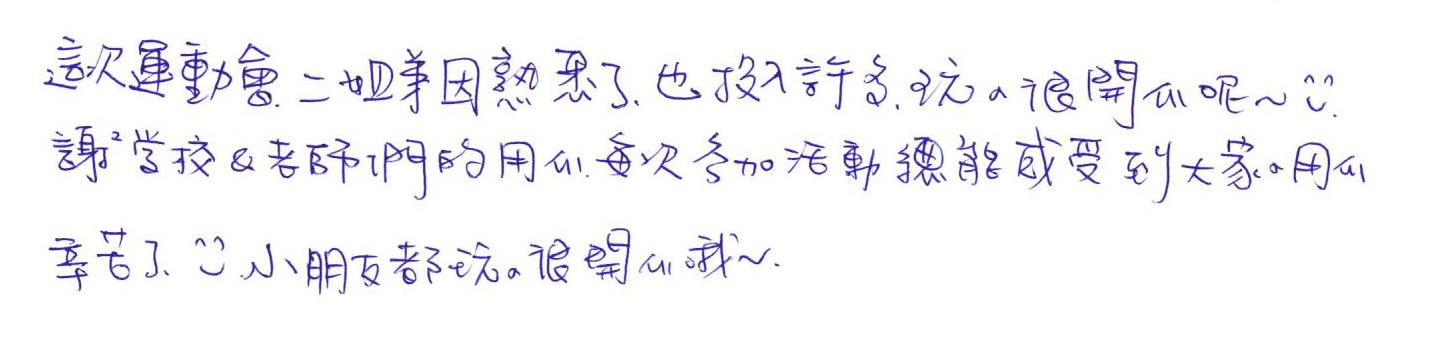 這次運動會.二姐弟因熟悉了.也投入許多.玩の很開心呢~ ^^.
謝²学校&老師們的用心.每次参加活動總能感受到大家の用心
辛苦了. ^^ 小朋友都玩の很開心哦~.